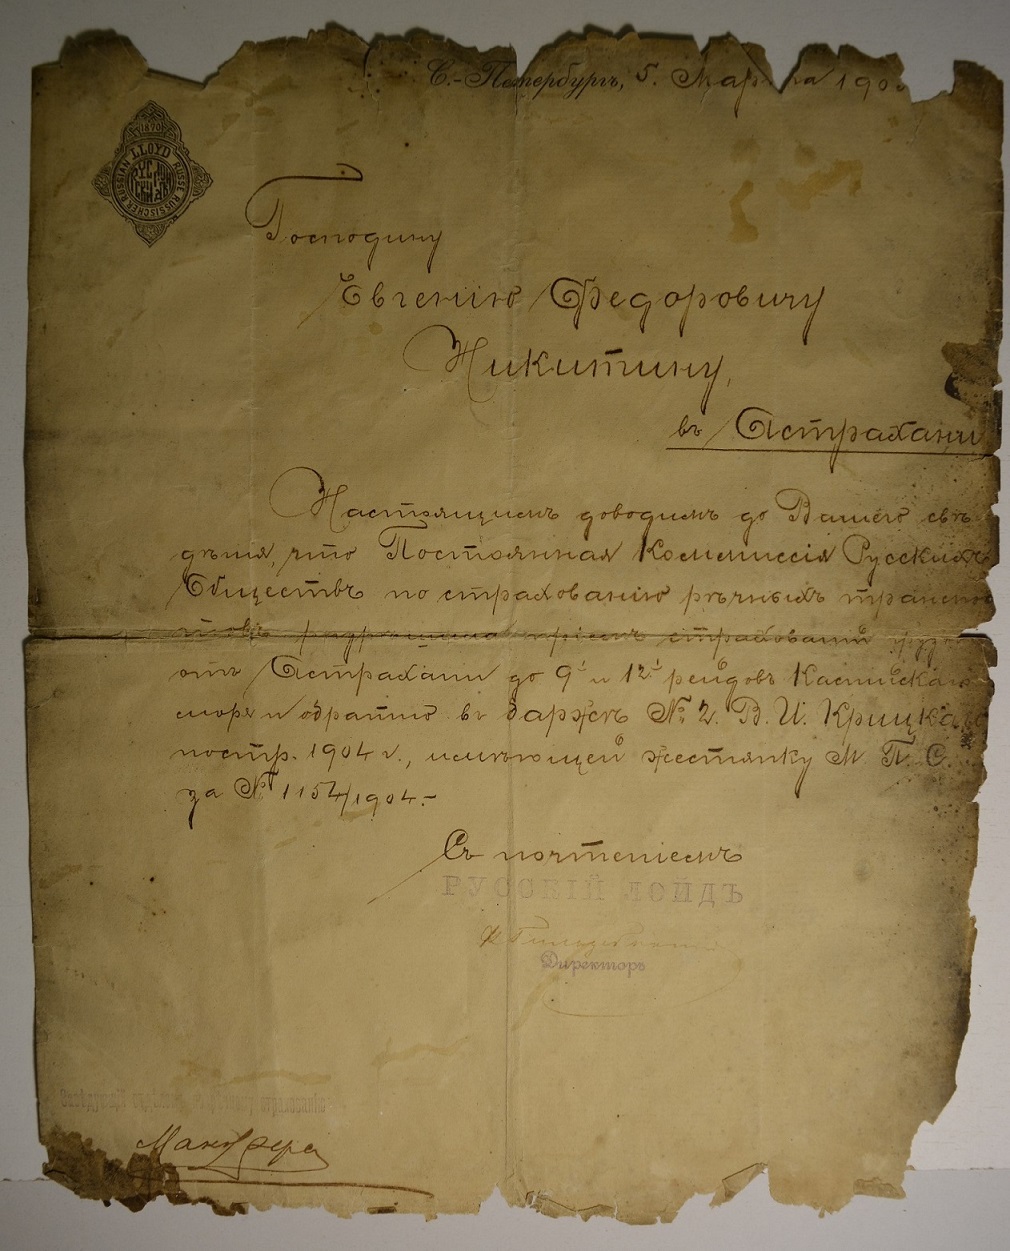 С.-Петербургъ, 5. Марта 190
1870
LLOYD
RUSSIAN RUSSE RUSSISCHER
Господину
Евгенію Федоровичу
Никитину,
въ Астрахани
Настоящимъ доводимъ до Вашего свѣ
дѣнія, что Постоянная Коммиссія Русскихъ
Обществъ по страхованію рѣчныхъ транспор
товъ разрѣшила пріемъ страхованій
отъ Астрахани до 9 и 12 рейдовъ Каспійскаго
моря и обратно въ баржѣ № 2. В. И. Крицкаго
постр. 1904 г., имѣющей жестянку М. П. С.
за № 1154/1904.-
Съ почтеніемъ
РУССКІЙ ЛОЙДЪ
Директоръ